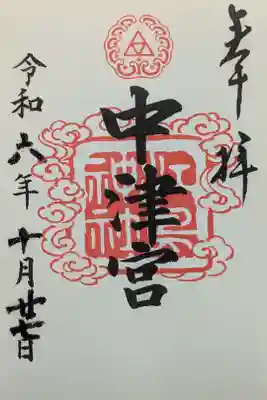 奉拝
中津宮
江島神社
令和六年十月廿七日